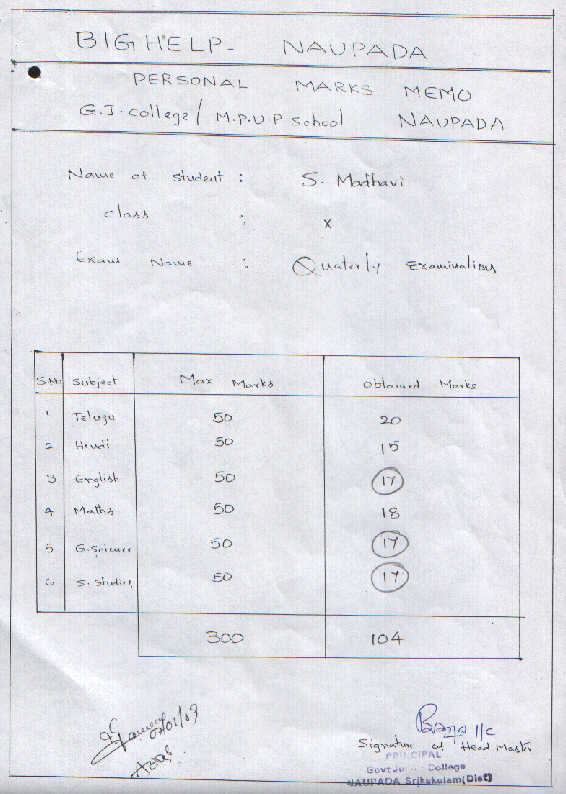 BIGHELP- NAUPADA
PERSONAL MARKS MEMO
G.J.College / M.P.U.P School NAUPADA
Name of Student : S. Madhavi
Class : X
Exam Name : Quaterly Examinations
S.No Subject Max Marks Obtained Marks
1 Telugu 50 20
2 Hindi 50 15
3 English 50 17
4 Maths 50 18
5 G.Science 50 17
6 S. Studies 50 17
300 104
I/c
Signature of Head Master
PRINCIPAL
Govt College
NAUPADA Srikakulam(Dist)